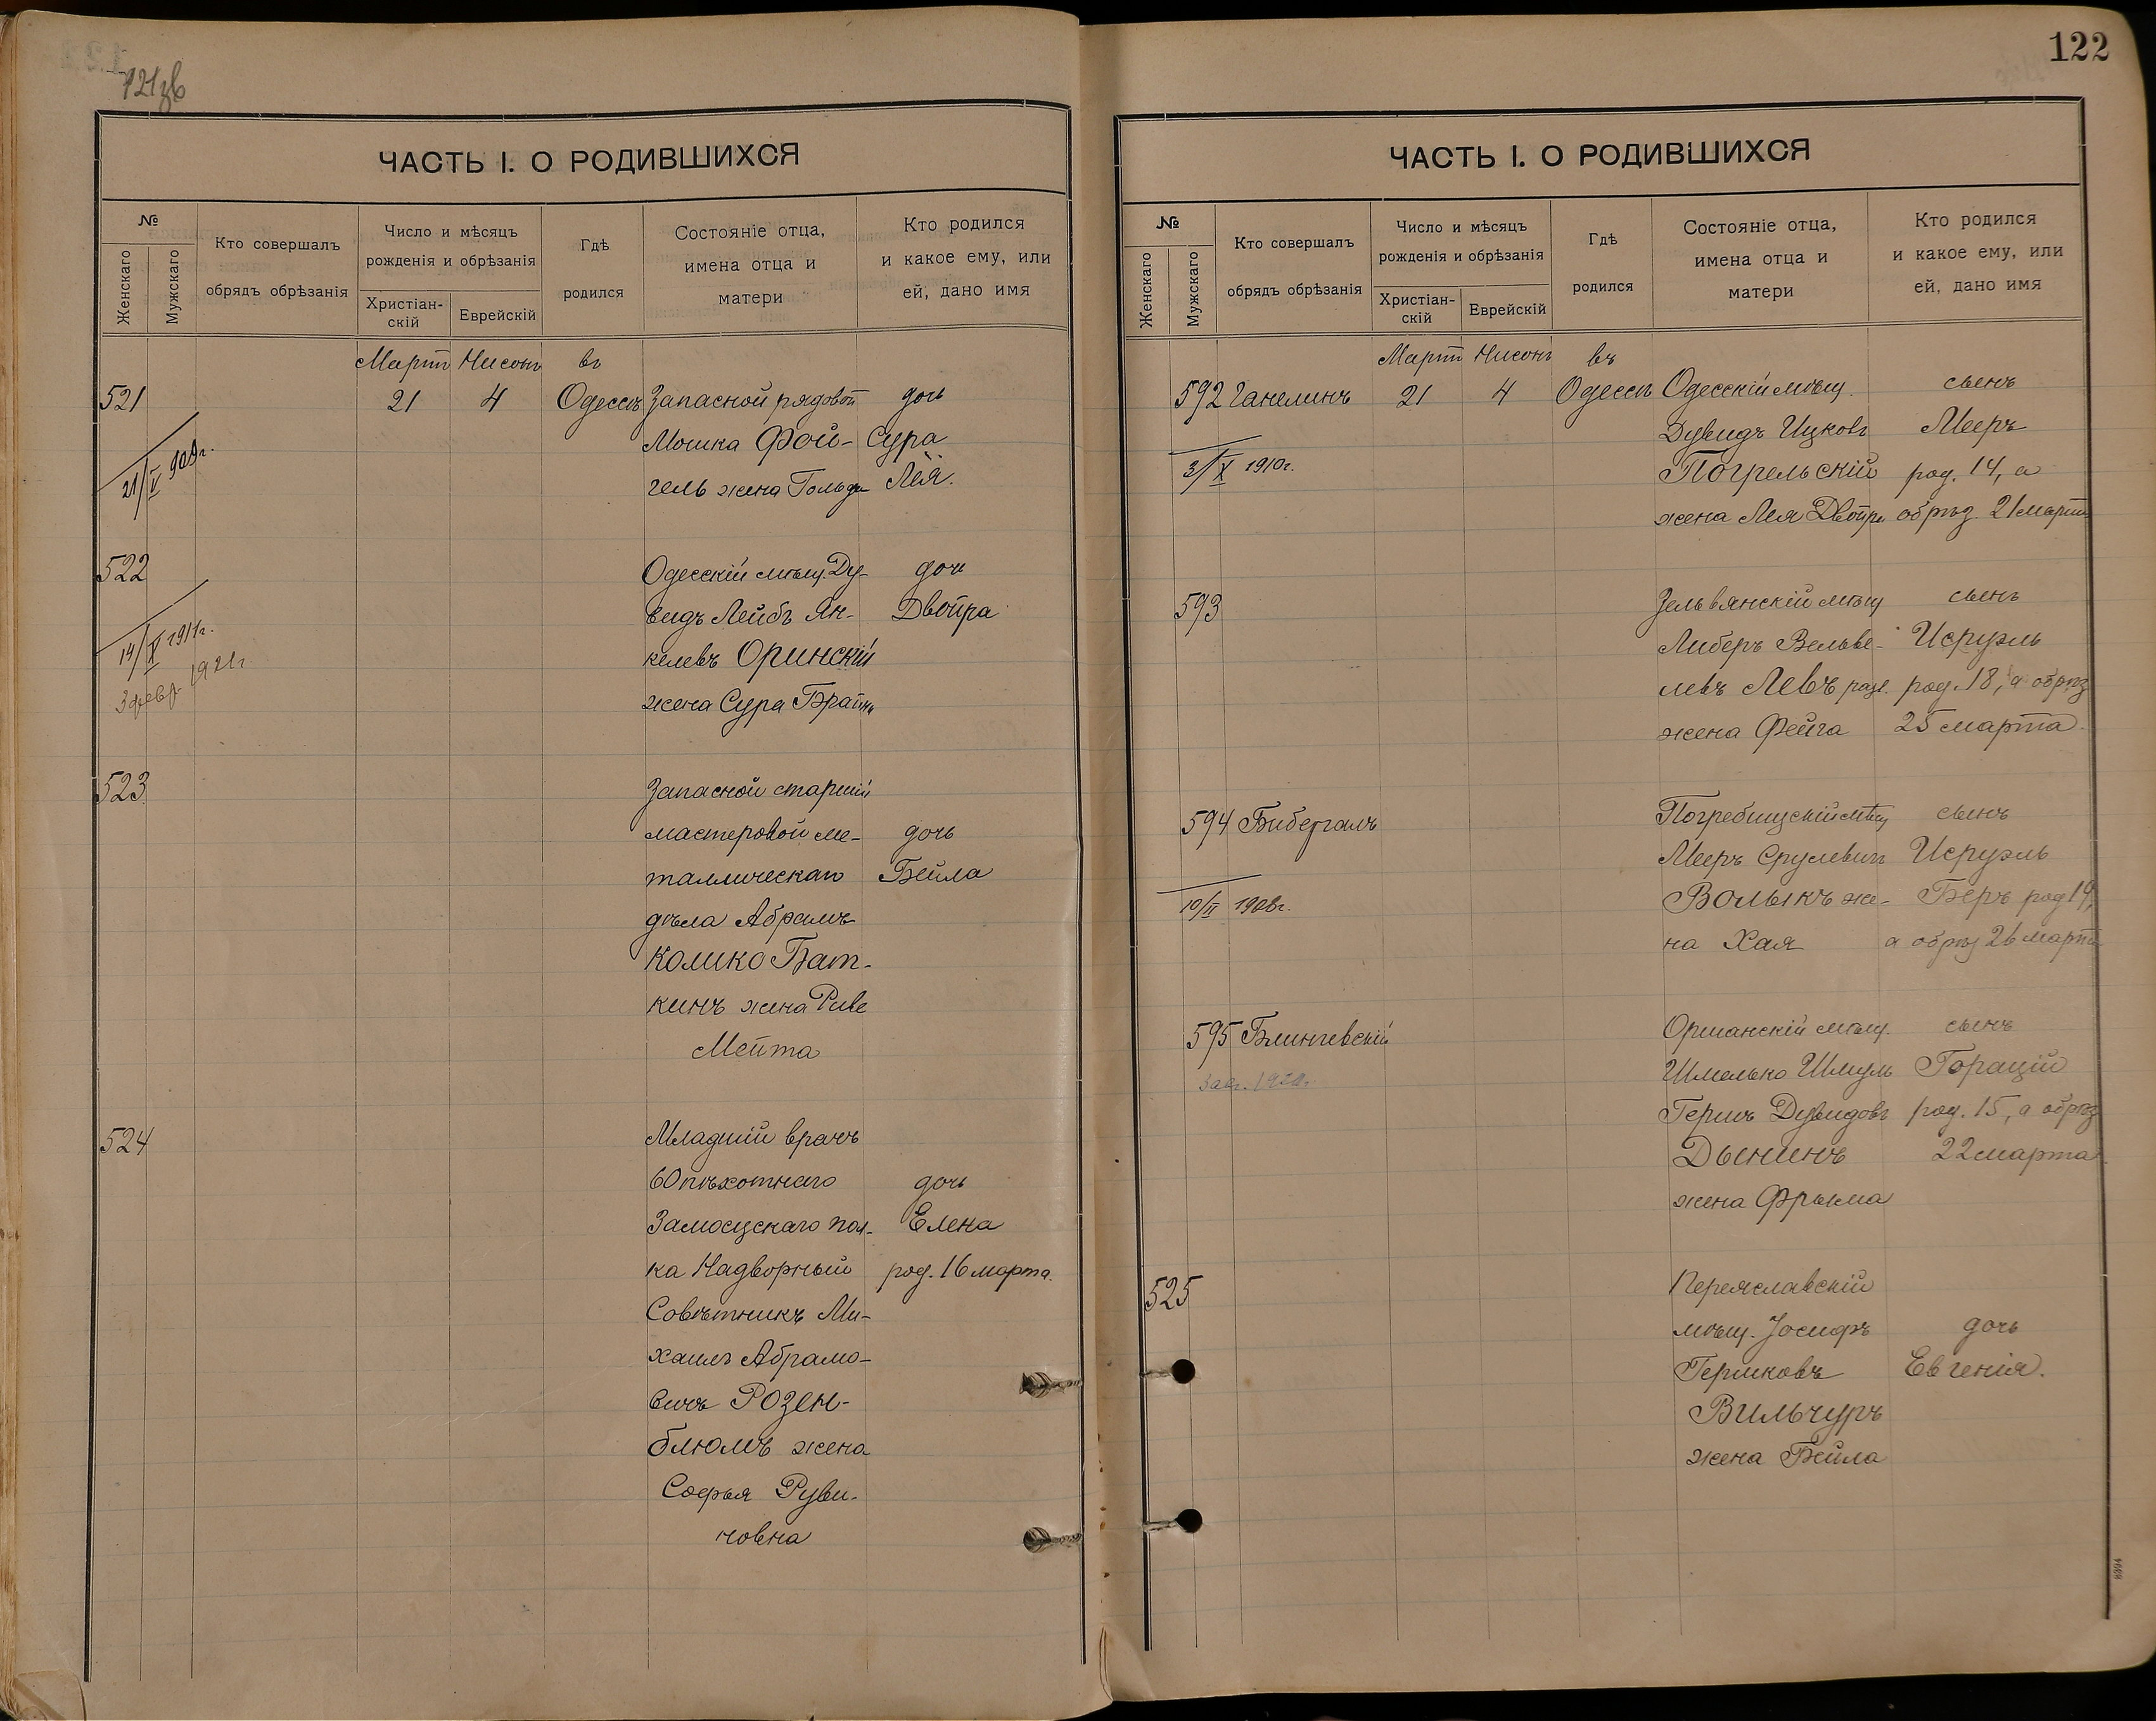 121зв
ЧАСТЬ I. О РОДИВШИХСЯ
№
Женскаго
Мужскаго
Кто совершалъ
обрядъ обрѣзанія
Число и мѣсяцъ
рожденія и обрѣзанія
Христіан-
скій
Еврейскій
Гдѣ
родился
Состояніе отца,
имена отца и
матери
Кто родился
и какое ему, или
ей, дано имя
Мартъ Нисонъ въ
521 21 4 Одессѣ Запасной рядовой дочь
Мошка Фой- Сура
гель жена Гольда Лея.
21/V 909г.
522 Одесскій мѣщ. Ду- дочь
видъ Лейбъ Ян- Двойра
келевъ Оринскій
жена Сура Брайна
14/X 1911г.
3 февр. 1921г
523 Запасной старшій
мастеровой ме- дочь
таллическаго Бейла
дѣла Абрамъ
Колико Бат-
кинъ жена Риве
Мейта
524 Младшій врачъ
60 пѣхотнаго дочь
Замосцскаго пол- Елена
ка Надворный род. 16 марта.
Совѣтникъ Ми-
хаилъ Абрамо-
вичъ Розен-
блюмъ жена
Софья Руви-
новна
122
ЧАСТЬ I. О РОДИВШИХСЯ
№
Женскаго
Мужскаго
Кто совершалъ
обрядъ обрѣзанія
Число и мѣсяцъ
рожденія и обрѣзанія
Христіан-
скій
Еврейскій
Гдѣ
родился
Состояніе отца,
имена отца и
матери
Кто родился
и какое ему, или
ей, дано имя
Мартъ Нисонъ въ
592 Ганелинъ 21 4 Одессѣ Одесскій мѣщ. сынъ
Дувидъ Ицковъ Мееръ
3/X 1910г. Погрельскій род. 14, а
жена Лея Двойра обрѣз. 21 марта
593 Зельвянскій мѣщ сынъ
Либеръ Вельве- Исруэль
левъ Левъ разв. род. 18, а обрѣз
жена Фейга 25 марта.
594 Бибергалъ Погребищскій мѣщ сынъ
Мееръ Срулевичъ Исруэль
10/II 1908г. Волыкъ же- Беръ род 19,
на Хая а обрѣз 26 марта
595 Блинчевскій Оршанскій мѣщ. сынъ
Шмелько Шмуль Горацій
3 авг. 1920г. Гершъ Дувидовъ род. 15, а обрѣз
Дынинъ 22 марта.
жена Фрыма
525 Переяславскій
мѣщ. Іосифъ дочь
Гершковъ Евгенія.
Вильчуръ
жена Бейла